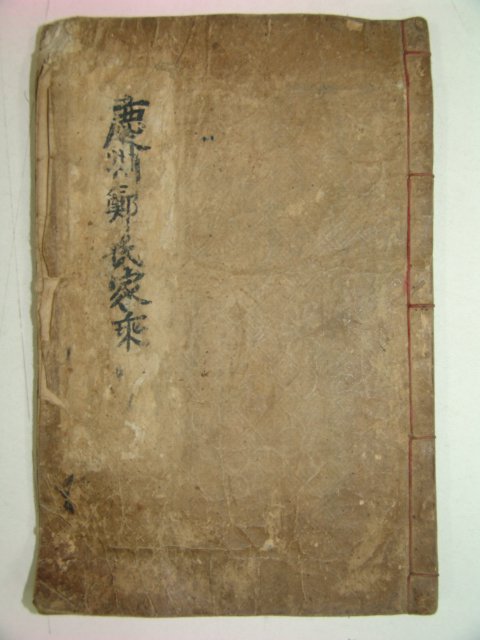 慶州鄭氏家乘